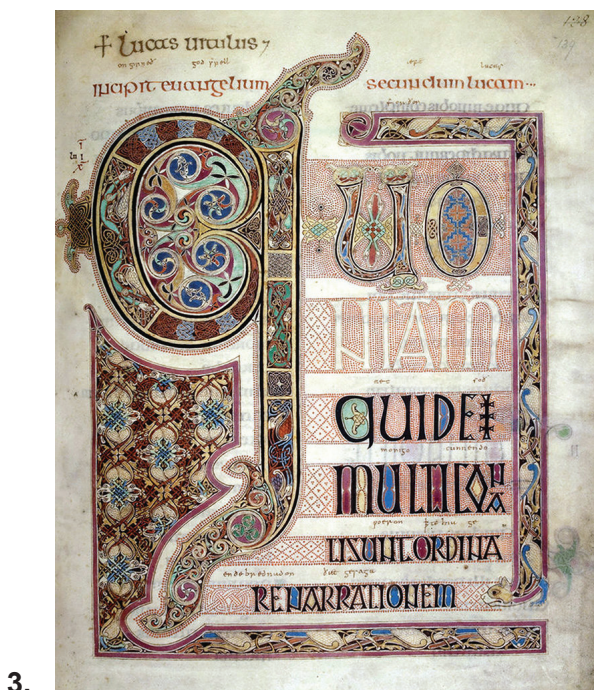 + Lucas uitulus
incipit euangelium secundum lucam
QUO
NIAM
QUIDEM
monigo
MULTI CONA
TI SUNT ORDINA
RE NARRATIONEM
3.